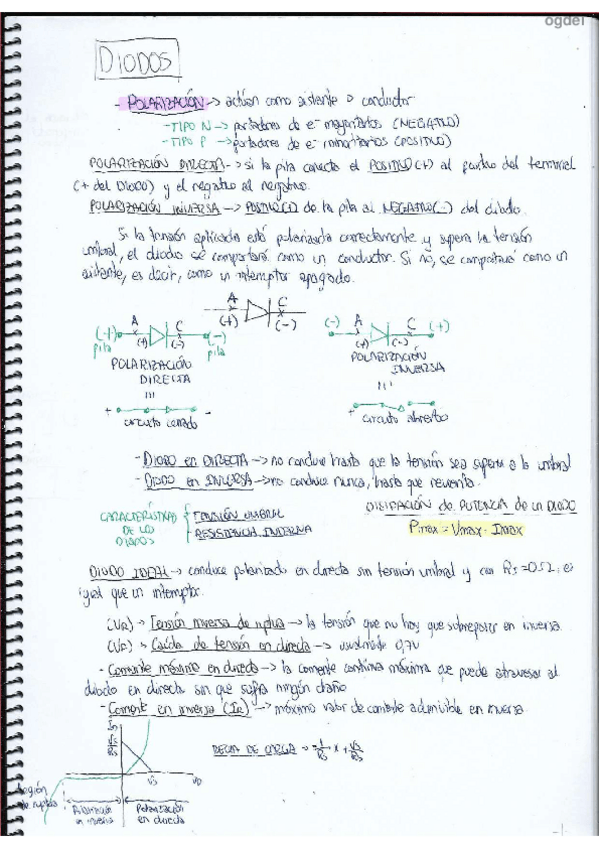 ogdei
DIODOS
- POLARIZACIÓN -> actúan como aislante o conductor
- TIPO N -> portadores de e- mayoritarios (NEGATIVO)
- TIPO P -> portadores de e- minoritarios (POSITIVO)
POLARIZACIÓN DIRECTA -> si la pila conecta el POSITIVO (+) al positivo del terminal
(+ del DIODO) y el negativo al negativo.
POLARIZACIÓN INVERSA -> POSITIVO (+) de la pila al NEGATIVO (-) del diodo.
Si la tensión aplicada está polarizada correctamente y supera la tensión
umbral, el diodo se comportará como un conductor. Si no, se comportará como un
aislante, es decir, como un interruptor apagado.
A C
(+) (-)
(+) A C (-)
pila (+) (-) pila
POLARIZACIÓN
DIRECTA
+ -
circuito cerrado
(-) A C (+)
(+) (-)
POLARIZACIÓN
INVERSA
+
circuito abierto
- DIODO en DIRECTA -> no conduce hasta que la tensión sea superior a la umbral
- DIODO en INVERSA -> no conduce nunca, hasta que revienta.
CARACTERÍSTICAS DE LOS DIODOS
TENSIÓN UMBRAL
RESISTENCIA INTERNA
DISIPACIÓN de POTENCIA de un DIODO
Pmax = Vmax · Imax
DIODO IDEAL -> conduce polarizado en directa sin tensión umbral y con Rs=0Ω, es
igual que un interruptor.
(VR) -> Tensión inversa de ruptura -> la tensión que no hay que sobrepasar en inversa
(VF) -> Caída de tensión en directa -> usualmente 0,7V
- Corriente máxima en directa -> la corriente continua máxima que puede atravesar al
diodo en directa sin que sufra ningún daño
- Corriente en inversa (IR) -> máximo valor de corriente admisible en inversa
RECTA DE CARGA
VS VD
Región de ruptura
Polarización en inversa
Polarización en directa
-1-